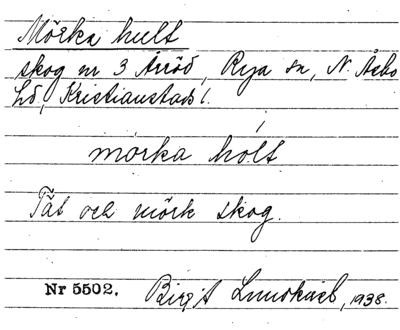 Mörka hult
skog nr 3 Arröd, Rya sn, N. Åsbo
hd, Kristianstads l.
mörka hólt
Tät och mörk skog.
Nr 5502. Birgit 1938.